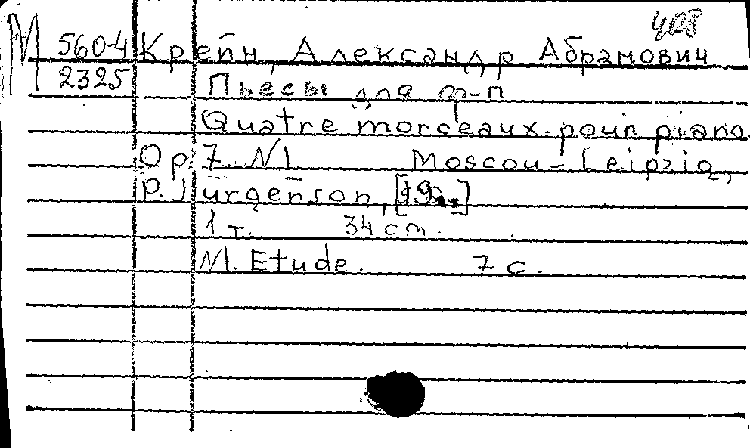 408
М 560-4 Крейн, Александр Абрамович
2325 Пьесы для ф-п
Quatre morceaux pour piano
Op. 7. N1 Moscou-Leipzig,
P. Jurgenson, [19..]
1 т. 34 cm.
N1. Etude. 7 с.